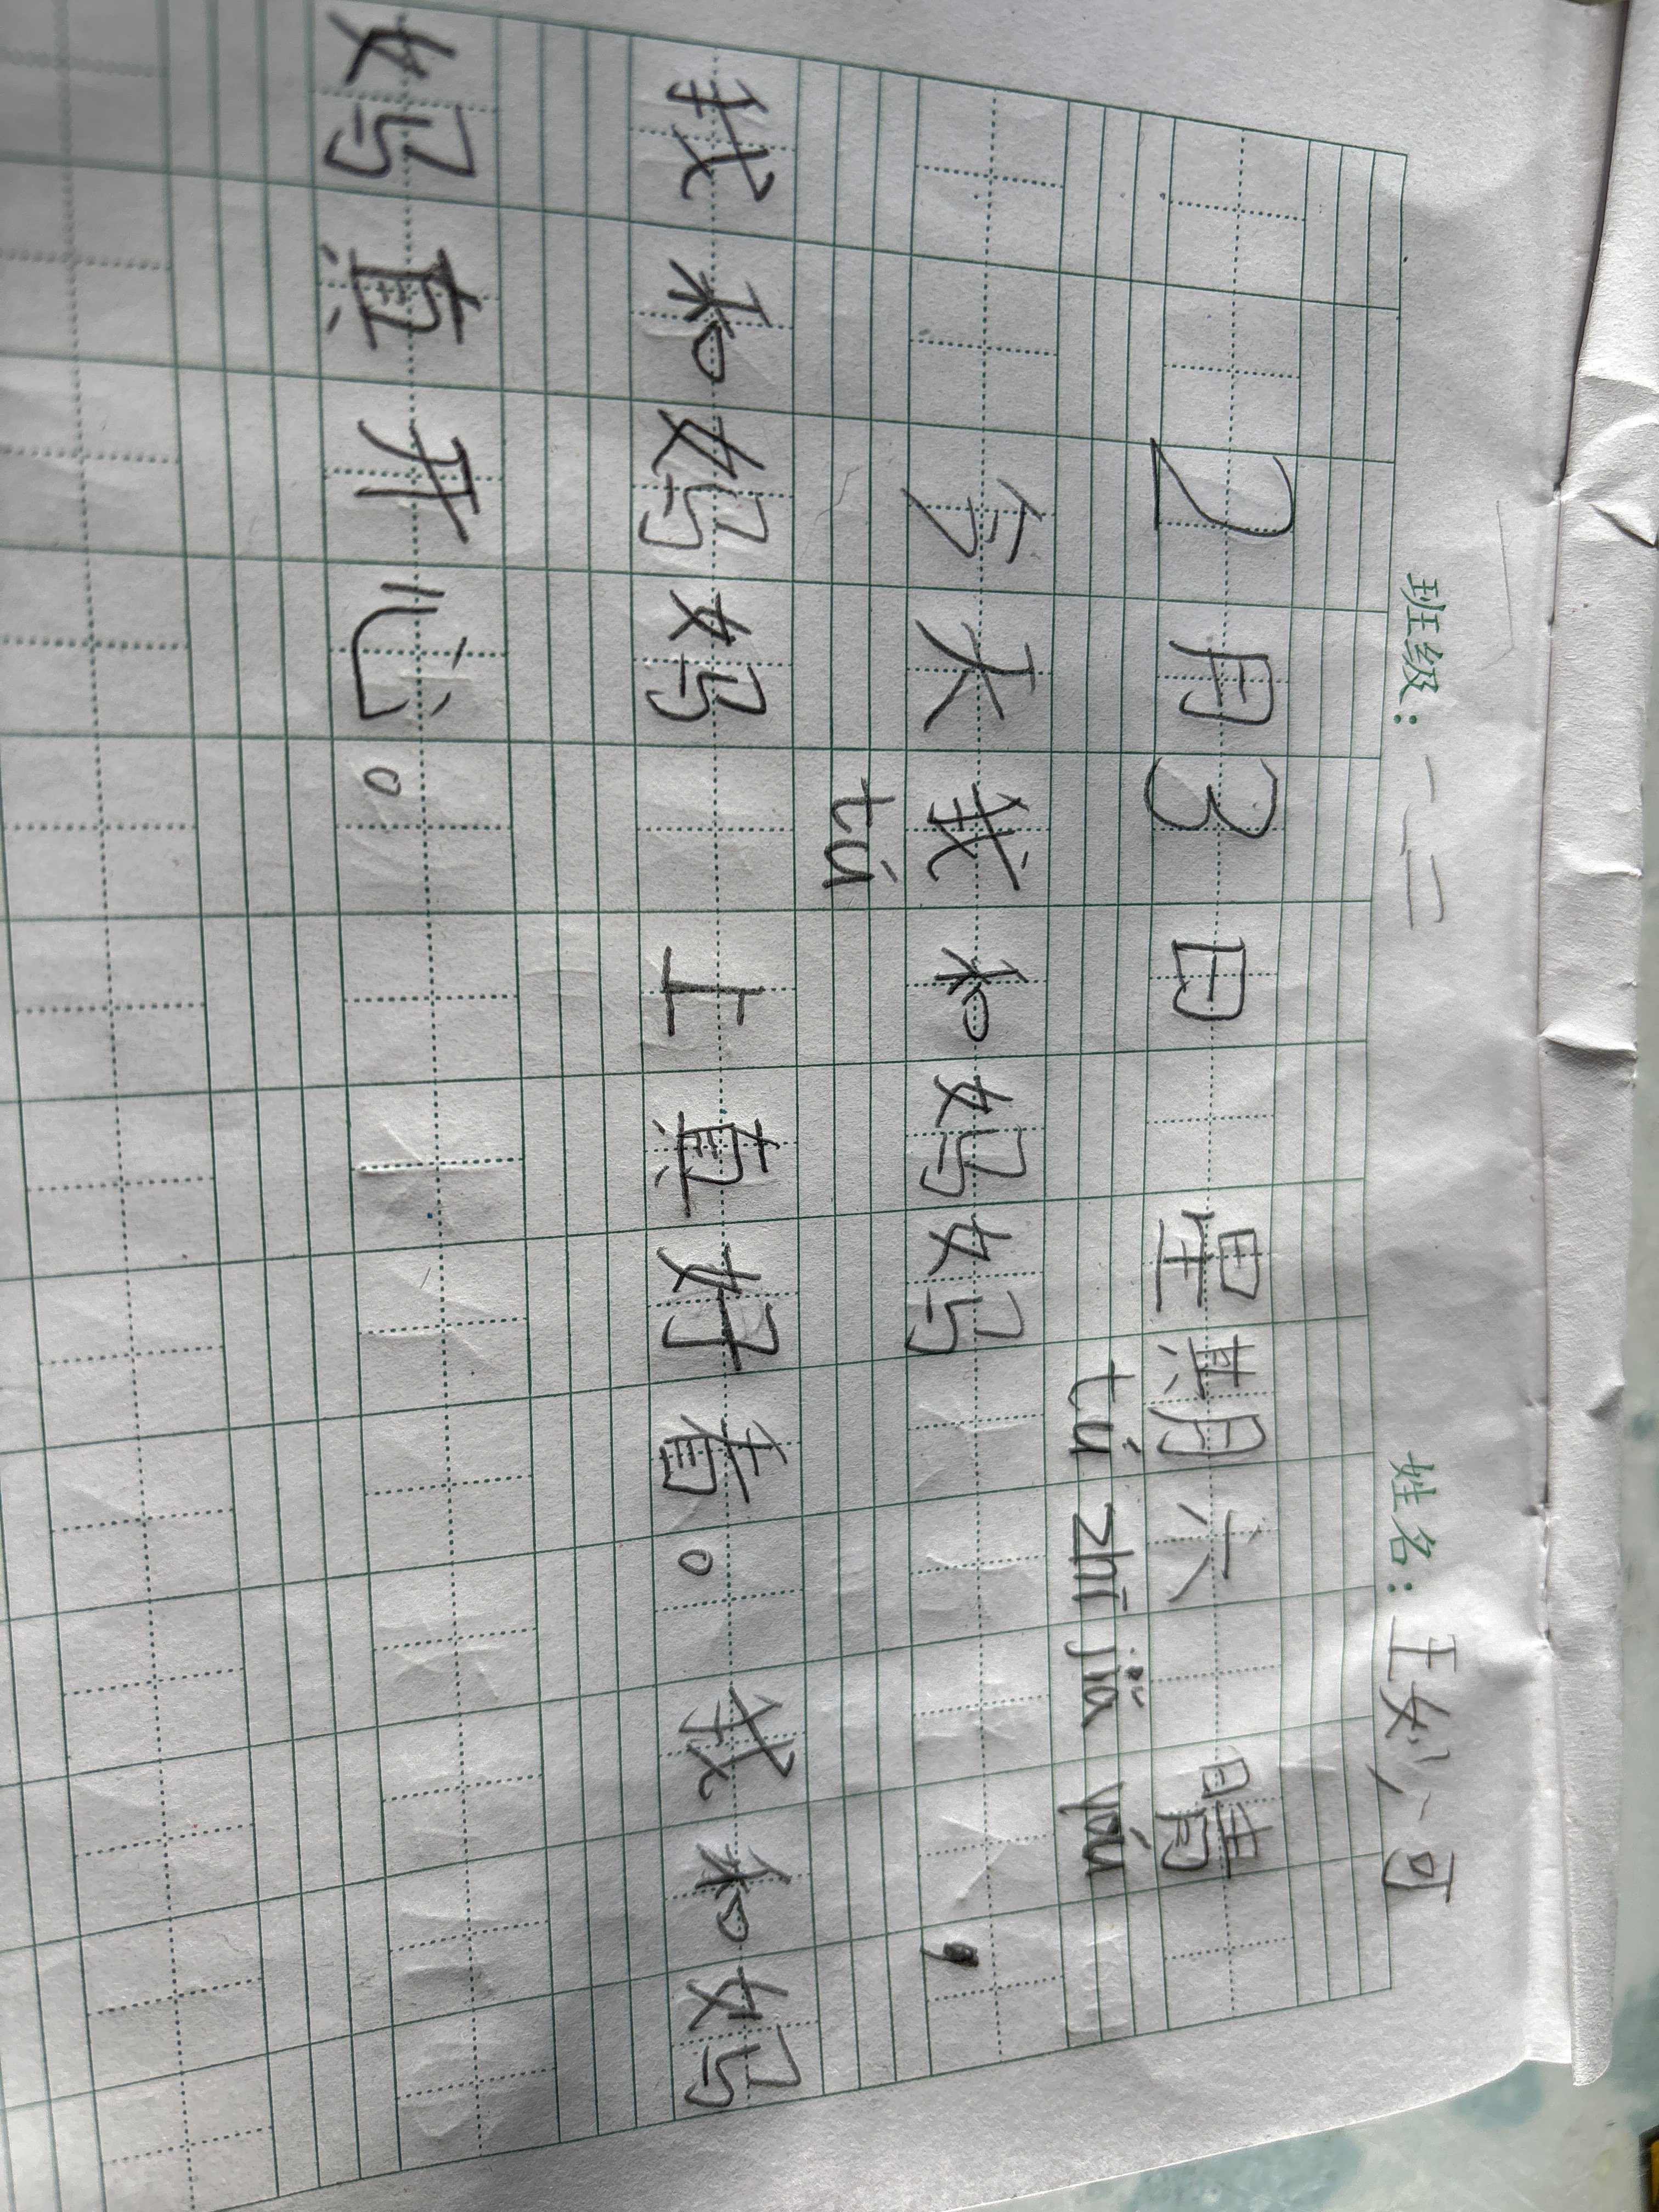 班级：一二 姓名：王妙可
2月3日 星期六 晴
tú zhǐ jiǎ yóu
今天我和妈妈，
tú
我和妈妈 上真好看。我和妈
妈真开心。